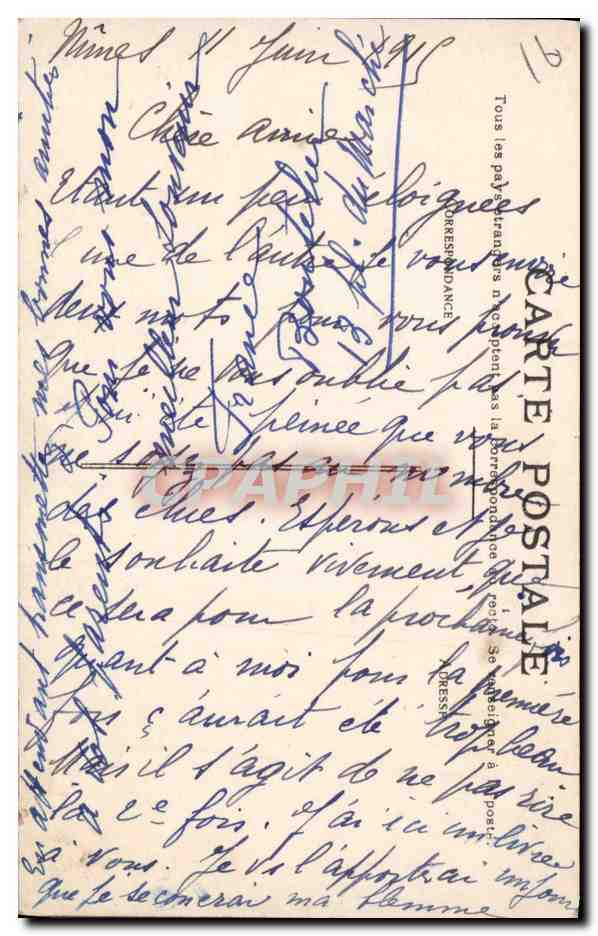 Nîmes 11 Juin 1915
Chère amie
Etant un peu éloignées
une de l'autre je vous envoie
deux mots pour vous prouver
que je ne vous oublie pas
J'ai été peinée que vous
ne soyez pas au nombre
des élues. Esperons et je
le souhaite vivement que
ce sera pour la prochaine fois
quant à moi pour la première
fois ç'aurait été trop beau
Mais il s'agit de ne pas rire
la 2e fois. J'ai ici un livre
à vous. Je vs l'apporterai un jour
que je seconerai ma flemme
En attendant transmettez mes bonnes amitiés
à vos parents
Pour vous mon
meilleur souvenir
France
13 pl. du Marché
CARTE POSTALE
Tous les pays étrangers n'acceptent pas la correspondance au recto. Se renseigner à la poste.
CORRESPONDANCE
ADRESSE
CPAPHIL